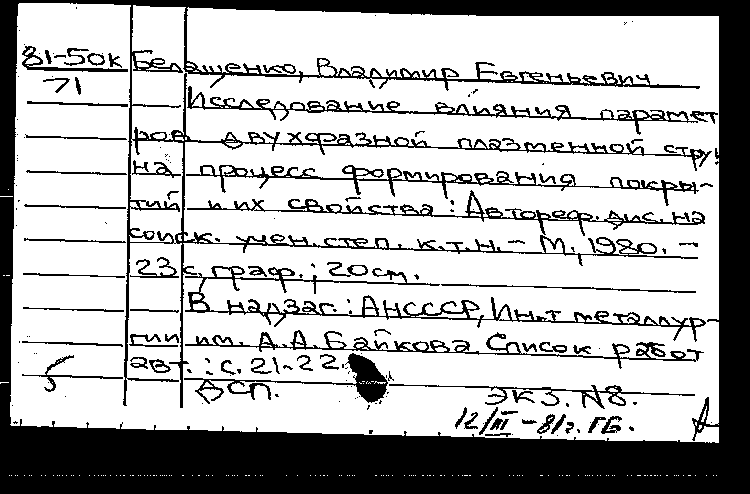 81-50к Белащенко, Владимир Евгеньевич
71
Исследование влияния парамет
ров двухфазной плазменной стру
на процесс формирования покры-
тий и их свойства: Автореф. дис. на
соиск. учен. степ. к.т.н. - М., 1980. -
23 с. граф.; 20 см.
В надзаг.: АН СССР, Ин-т металлур-
гии им. А.А. Байкова. Список работ
авт.: с. 21-22.
5 ДСП. экз. N8.
12/III - 81г. ГБ.